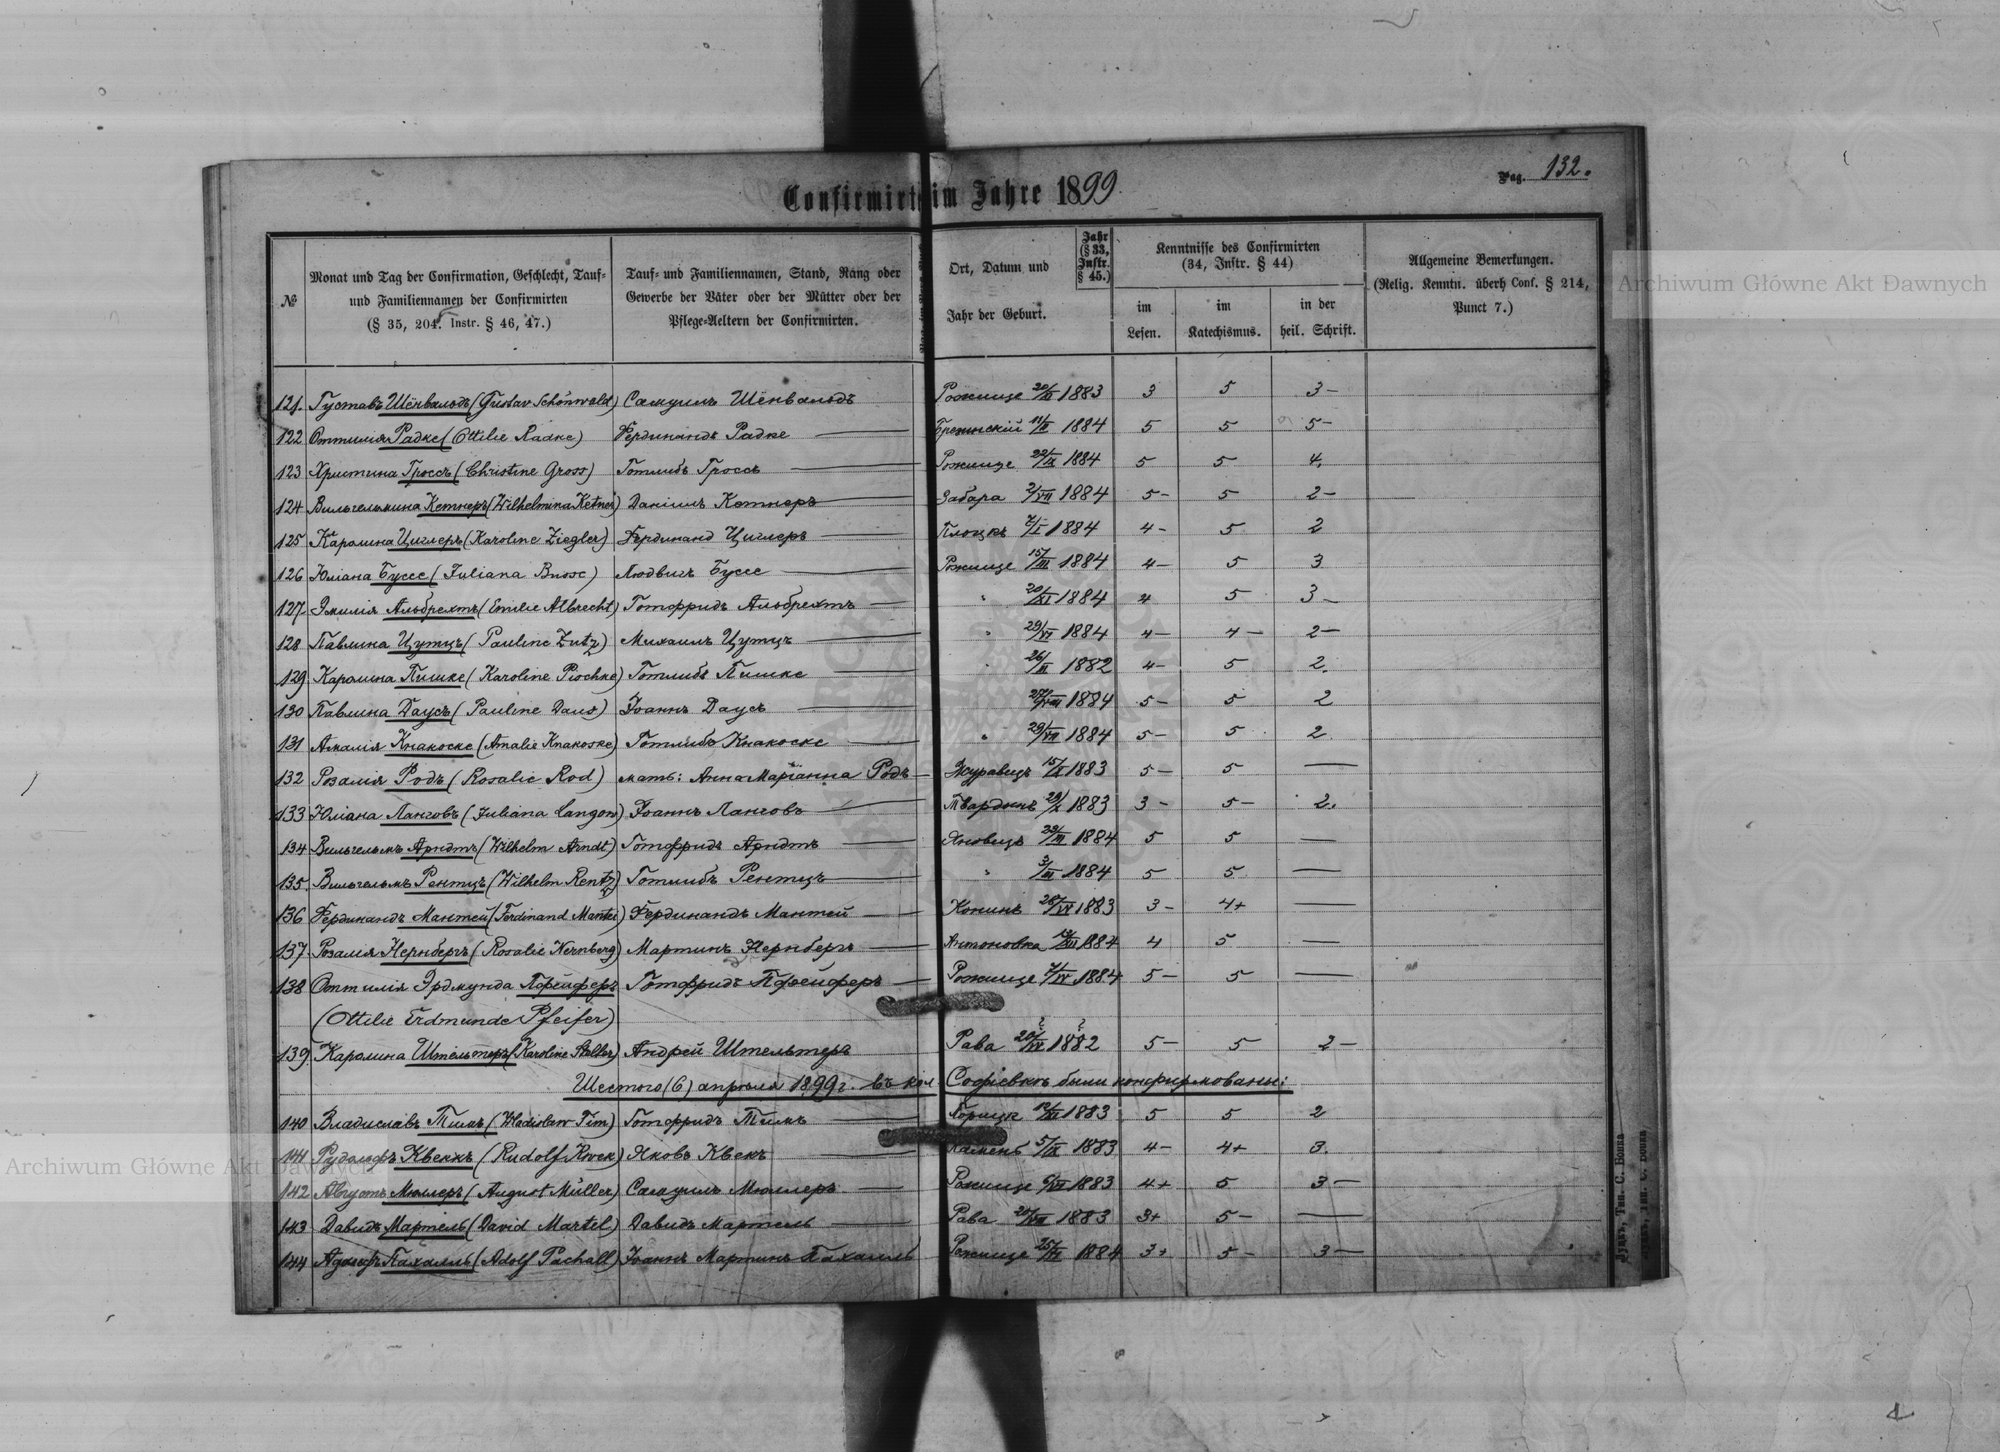 Confirmirt im Jahre 1899
Pag. 132.
№
Monat und Tag der Confirmation, Geschlecht, Tauf- und Familiennamen der Confirmirten (§ 35, 204. Instr. § 46, 47.)
Tauf- und Familiennamen, Stand, Rang oder Gewerbe der Väter oder der Mütter oder der Pflege-Aeltern der Confirmirten.
Ort, Datum und Jahr der Geburt.
Jahr (§ 33, Instr. § 45.)
Kenntnisse des Confirmirten (34, Instr. § 44)
im Lesen.
im Katechismus.
in der heil. Schrift.
Allgemeine Bemerkungen. (Relig. Kenntn. überh Conf. § 214, Punct 7.)
121. Густавъ Шёнвальдъ (Gustav Schönwald) Самуилъ Шёнвальдъ Рожище 1883 3 5 3-
122 Оттилія Радке (Ottilie Radke) Фердинандъ Радке 1884 5 5 5-
123 Христина Гроссъ (Christine Gross) Готлибъ Гроссъ Рожище 22/IX 1884 5 5 4.
124 Вильгельмина Кетнеръ (Wilhelmina Ketner) Даніилъ Кетнеръ Забара 2/VII 1884 5- 5 2-
125 Каролина Циглеръ (Karoline Ziegler) Фердинанд Циглеръ Плоцкъ 2/I 1884 4- 5 2
126 Юліана Буссе (Juliana Busse) Людвигъ Буссе Рожище 15/III 1884 4- 5 3
127. Эмилія Альбрехтъ (Emilie Albrecht) Готфридъ Альбрехтъ " 20/XI 1884 4 5 3-
128 Павлина Цутцъ (Pauline Zutz) Михаилъ Цутцъ " 29/VI 1884 4- 4- 2-
129 Каролина Пишке (Karoline Pischke) Готлибъ Пишке " 26/II 1882 4- 5 2.
130 Павлина Даусъ (Pauline Daus) Іоаннъ Даусъ 1884 5- 5 2
131 Амалія Кнакоске (Amalie Knakoske) Готлибъ Кнакоске " 29/VII 1884 5- 5 2
132 Розалія Родъ (Rosalie Rod) мать: Анна Маріанна Родъ Журавецъ 1883 5- 5 —
133 Юліана Ланговъ (Juliana Langow) Іоаннъ Ланговъ 29/X 1883 3- 5- 2.
134 Вильгельмъ Арндтъ (Wilhelm Arndt) Готфридъ Арндтъ Яновецъ 23/III 1884 5 5 —
135. Вильгельмъ Рентцъ (Wilhelm Rentz) Готлибъ Рентцъ " 3/III 1884 5 5 —
136 Фердинандъ Мантей (Ferdinand Mantei) Фердинандъ Мантей Конинъ 1883 3- 4+ —
137. Розалія Нернбергъ (Rosalie Nernberg) Мартинъ Нернбергъ Антоновка 1884 4 5 —
138 Оттилія Эрдмунда Пфейферъ Готфридъ Пфейферъ Рожище 1884 5- 5 —
(Ottilie Erdmunde Pfeifer)
139. Каролина Штельтеръ (Karoline Stelter) Андрей Штельтеръ Рава 1882 5- 5 2-
Шестого (6) апрѣля 1899 г. въ кол. Софіевкѣ были конфирмованы:
140 Владиславъ Тимъ (Wladislaw Tim) Готфридъ Тимъ 1883 5 5 2
141 Рудольфъ Квекъ (Rudolf Kwek) Яковъ Квекъ Камень 5/IX 1883 4- 4+ 3.
142 Августъ Мюллеръ (August Müller) Самуилъ Мюллеръ Рожище 1883 4+ 5 3-
143 Давидъ Мартель (David Martel) Давидъ Мартель Рава 1883 3+ 5- —
144 Адольфъ Пахалль (Adolf Pachall) Іоаннъ Мартинъ Пахалль Рожище 1884 3+ 5- 3-
Луцкъ, Тип. С. Бонка
Archiwum Główne Akt Dawnych
Archiwum Główne Akt Dawnych